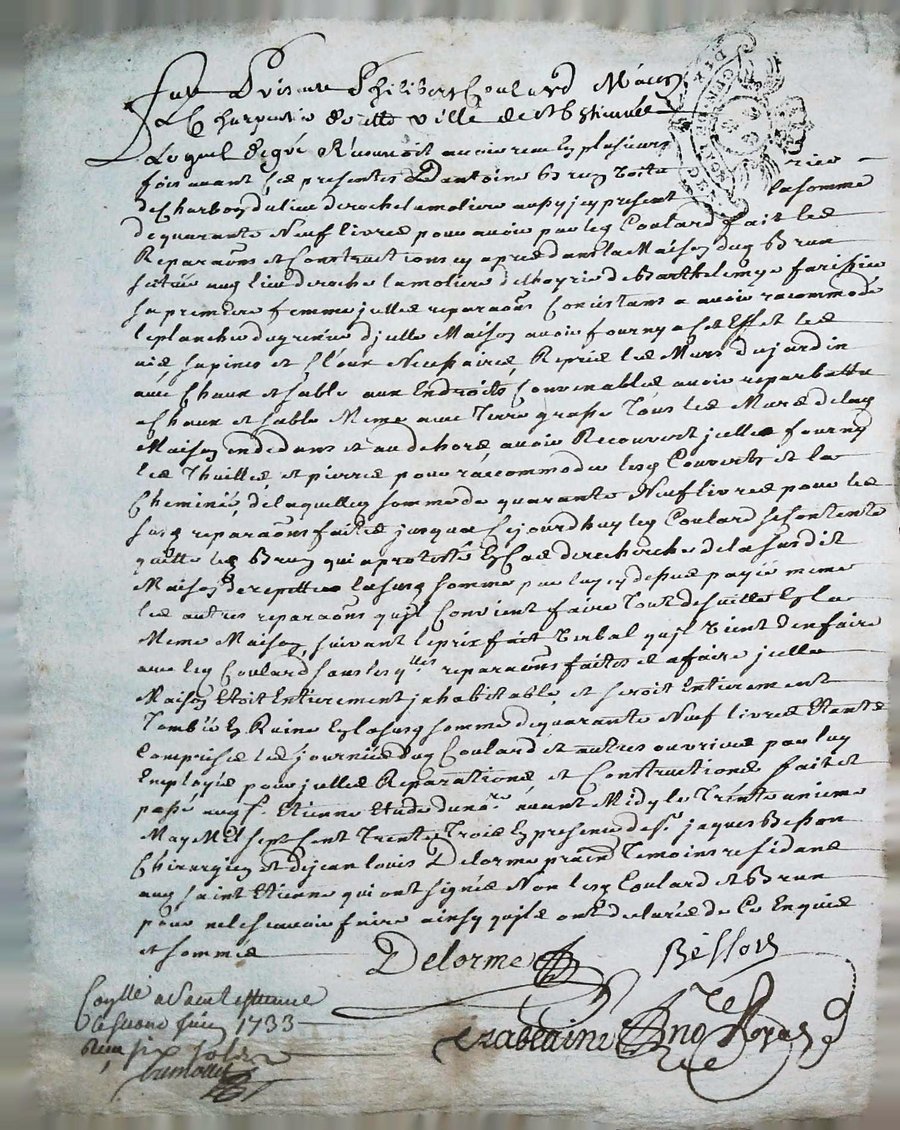 Fut present Philibert Coulard M.e
charpentier de cette ville de St Estienne
Lequel de gré Reconnoit avoir receu En plusieurs
fois avant ces presentes D'antoine Brun voiturier
de Charbon du lieu de rochelamoliere aussy jcy present la somme
de quarante Neuf livres pour avoir par led Coulard fait les
Reparaõns et Constructions cy apres dans la Maison dud Brun
scituée aud lieu de roche la moliere de Barthelemye farissier
sa premiere femme jcelles reparaõns Consistans a avoir racommodé
le planché du grenier d jcelle Maison avoir fourny a cet Effet les
ais sapines et cloux Necessaires, Reprié les Murs du jardin
avec Chaux et sable aux Endroits Convenables avoir reparbattu
a Chaux et sable Meme avec Terre grasse Tous les Murs de lad
Maison en dedans et au dehors avoir Recouvert jcelle fourny
les Thuilles et pierres pour raccommoder lesd Couverts et la
Cheminée, de laquelle somme de quarante Neuf livres pour les
susd reparaõns faites jusqua Cejourdhuy led Coulard se Contente
quitte led Brun qui a protesté En Cas de recherche de la susdit
Maison de repetter lasusd somme par luy cy dessus payée meme
les autres reparaõns quil Convient faire Tout de suitte En la
Meme Maison, suivant le prix fait Verbal quil Vient den faire
avec led Coulard sans lesqlles reparaõns faites et a faire jcelle
Maison Etoit Entierement jnhabitable, et seroit Entierement
Tombée En Ruine En lasusd somme de quarante Neuf livres Etants
Comprises les journées dud Coulard et autres ouvriers par luy
Employés pour jcelles Reparations et Constructions fait et
passé aud St Etienne Etude du nore avant Midy le Trente unieme
May Mil sept Cent Trente Trois En presence de Sr jacques Besson
Chirurgien et de jean Louis Delorme praticien Temoins residans
aud saint Etienne qui ont signés Non lesd Coulard et Brun
pour ne le scavoir faire ainsy quils ont declaré de Ce Enquis
et sommés
Delorme Besson
no.re Royal
Conllé a Saint estienne
le second juin 1733
Receu six sols